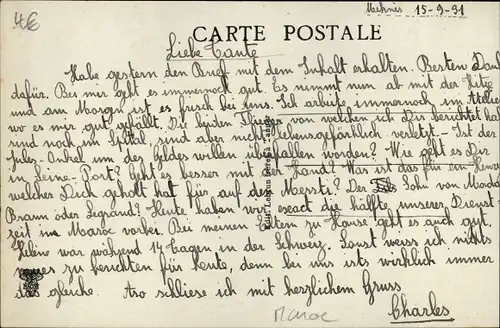 4€
Meknès 15-9-31
CARTE POSTALE
Liebe Tante
Habe gestern den Brief mit dem Inhalt erhalten. Besten Dank
dafür. Bei mir geht es immernoch gut. Es nimmt nun ab mit der Hitze
und am Morgen ist es frisch bei uns. Ich arbeite immernoch im Atelier
wo es mir gut gefällt. Die beiden Flieger von welchen ich Dir berichtet hab
sind noch im Spital, sind aber nicht lebensgefährlich verletzt. - Ist der
Jules-Onkel um des Geldes willen überfallen worden? Wie geht es Dir
in Seine-Port? Geht es besser mit der Hand? Was ist das für ein Herr
welcher Dich geholt hat für auf des Meesti? Der Sohn von
Braun oder Legrand? Heute haben wir exact die hälfte unserer Dienst-
zeit im Maroc vorbei. Bei meinen Eltern zu Hause geht es auch gut.
Helene war während 14 Tagen in der Schweiz. Sonst weiss ich nichts
neues zu berichten für heute, denn bei uns ists wirklich immer
das gleiche. Also schliese ich mit herzlichem Gruss
Charles
Maroc